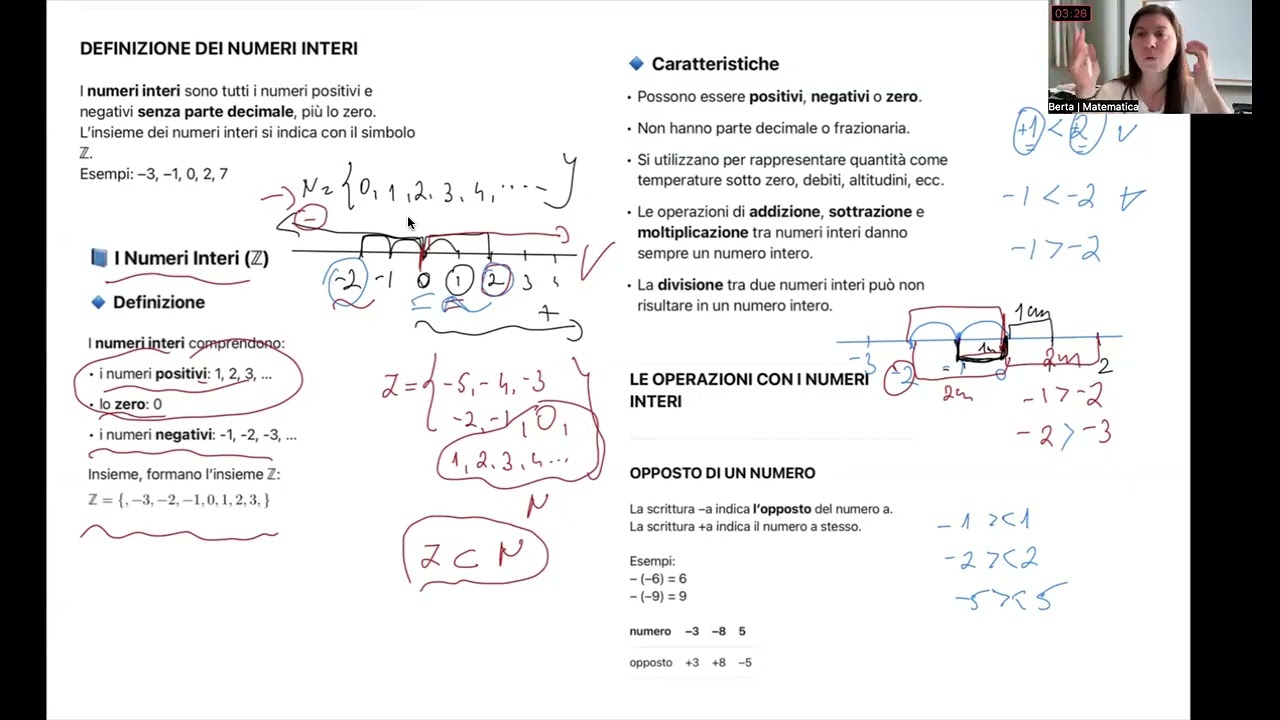 DEFINIZIONE DEI NUMERI INTERI
I numeri interi sono tutti i numeri positivi e
negativi senza parte decimale, più lo zero.
L'insieme dei numeri interi si indica con il simbolo
ℤ.
Esempi: –3, –1, 0, 2, 7
N = {0, 1, 2, 3, 4, ....}
-
-2 -1 0 1 2 3 4
+
📘 I Numeri Interi (ℤ)
🔹 Definizione
I numeri interi comprendono:
• i numeri positivi: 1, 2, 3, ...
• lo zero: 0
• i numeri negativi: -1, -2, -3, ...
Insieme, formano l'insieme ℤ:
ℤ = {, −3, −2, −1, 0, 1, 2, 3, }
Z = {-5, -4, -3
-2, -1, 0,
1, 2, 3, 4...}
N
Z ⊂ N
🔹 Caratteristiche
• Possono essere positivi, negativi o zero.
• Non hanno parte decimale o frazionaria.
• Si utilizzano per rappresentare quantità come
temperature sotto zero, debiti, altitudini, ecc.
• Le operazioni di addizione, sottrazione e
moltiplicazione tra numeri interi danno
sempre un numero intero.
• La divisione tra due numeri interi può non
risultare in un numero intero.
03:28
Berta | Matematica
+1 < 2 V
-1 < -2
-1 > -2
1cm
1cm
-3 -2 -1 0 2
2cm 2cm
-1 > -2
-2 > -3
LE OPERAZIONI CON I NUMERI
INTERI
OPPOSTO DI UN NUMERO
La scrittura –a indica l'opposto del numero a.
La scrittura +a indica il numero a stesso.
Esempi:
– (–6) = 6
– (–9) = 9
numero –3 –8 5
opposto +3 +8 –5
-1 >< 1
-2 >< 2
-5 >< 5